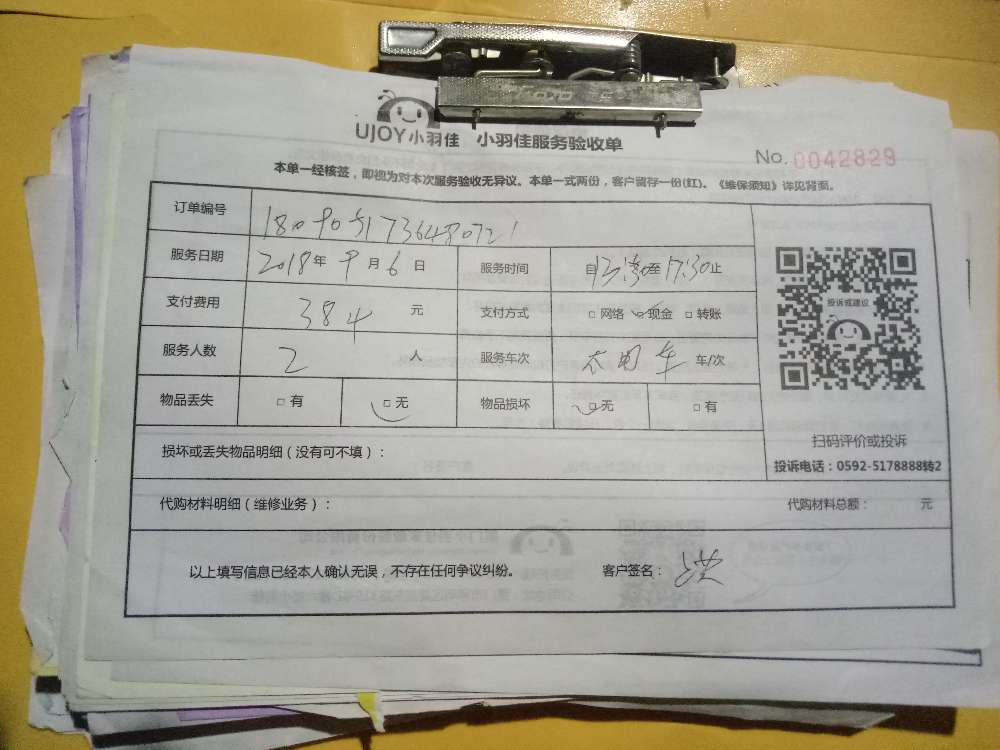 UJOY小羽佳 小羽佳服务验收单
No. 0042829
本单一经核签，即视为对本次服务验收无异议。本单一式两份，客户留存一份(红)。《维保须知》详见背面。
订单编号
服务日期 2018年9月6日 服务时间 自13:30至17:30止
投诉或建议
支付费用 384 元 支付方式 □网络 □现金 □转账
服务人数 2 人 服务车次 太阳车 车/次
物品丢失 □有 □无 物品损坏 □无 □有
扫码评价或投诉
损坏或丢失物品明细（没有可不填）：
投诉电话：0592-5178888转2
代购材料明细（维修业务）： 代购材料总额： 元
以上填写信息已经本人确认无误，不存在任何争议纠纷。 客户签名：